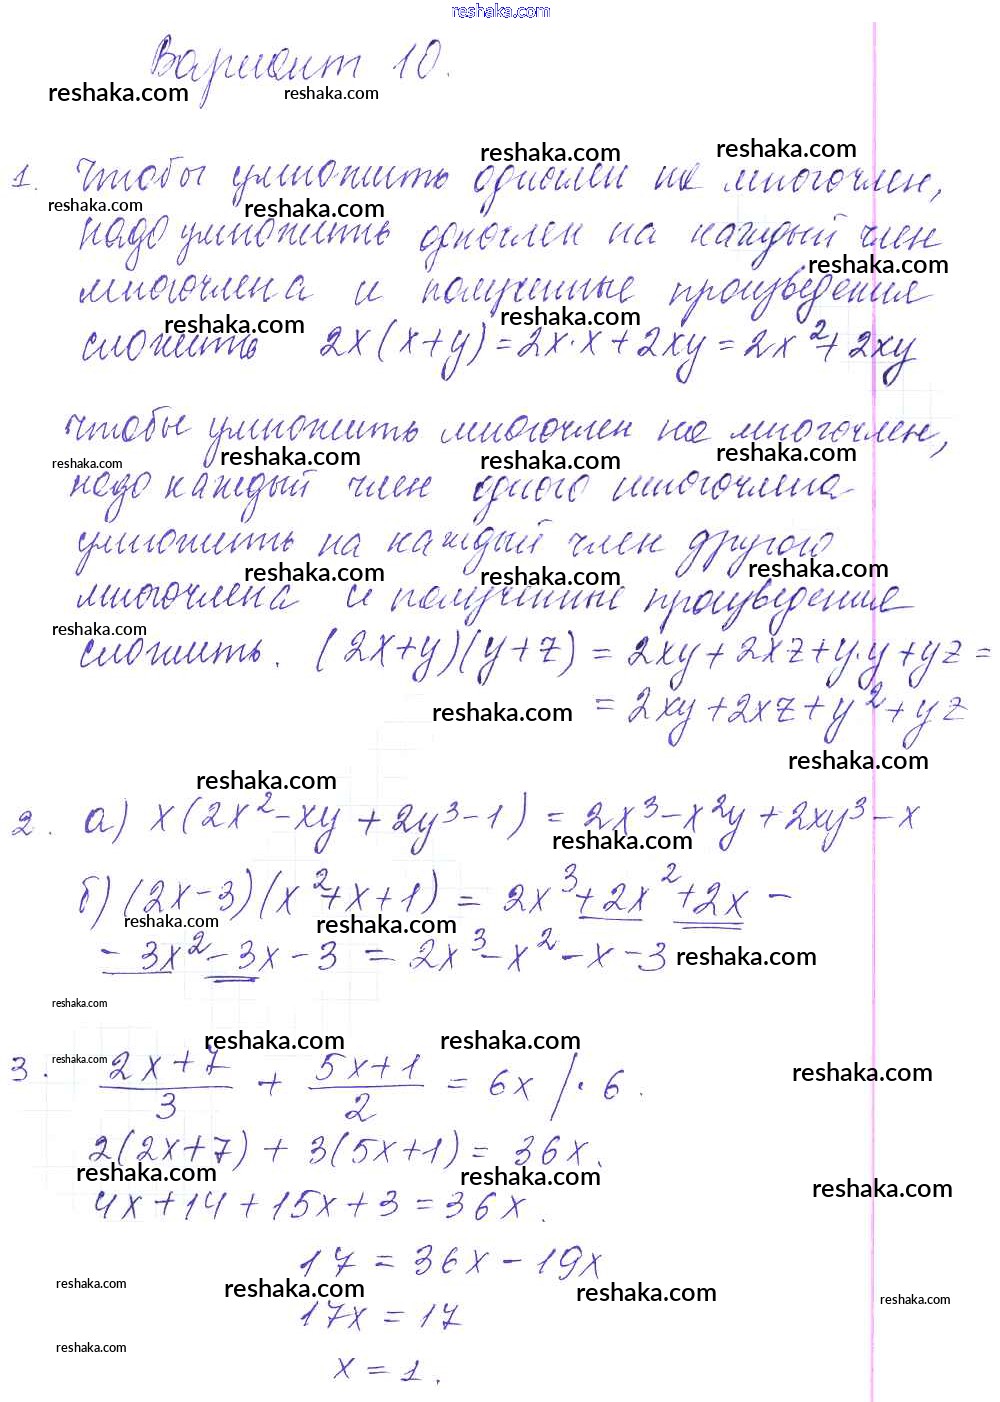 reshaka.com
Вариант 10.
reshaka.com reshaka.com
reshaka.com reshaka.com
1. Чтобы умножить одночлен на многочлен,
reshaka.com reshaka.com
надо умножить одночлен на каждый член
reshaka.com
многочлена и полученные произведения
reshaka.com reshaka.com
сложить 2x(x+y)=2x·x+2xy=2x²+2xy
Чтобы умножить многочлен на многочлен,
reshaka.com reshaka.com reshaka.com reshaka.com
надо каждый член одного многочлена
умножить на каждый член другого
reshaka.com reshaka.com reshaka.com
многочлена и полученные произведения
reshaka.com
сложить. (2x+y)(y+z)=2xy+2xz+y·y+yz=
reshaka.com =2xy+2xz+y²+yz
reshaka.com
reshaka.com
2. а) x(2x²-xy+2y³-1)=2x³-x²y+2xy³-x
reshaka.com
б) (2x-3)(x²+x+1)=2x³+2x²+2x-
reshaka.com reshaka.com
-3x²-3x-3=2x³-x²-x-3 reshaka.com
reshaka.com
reshaka.com reshaka.com
3. reshaka.com (2x+7)/3 + (5x+1)/2 = 6x /·6. reshaka.com
2(2x+7)+3(5x+1)=36x.
reshaka.com reshaka.com reshaka.com
4x+14+15x+3=36x.
17=36x-19x
reshaka.com reshaka.com reshaka.com reshaka.com
17x=17
reshaka.com
x=1.